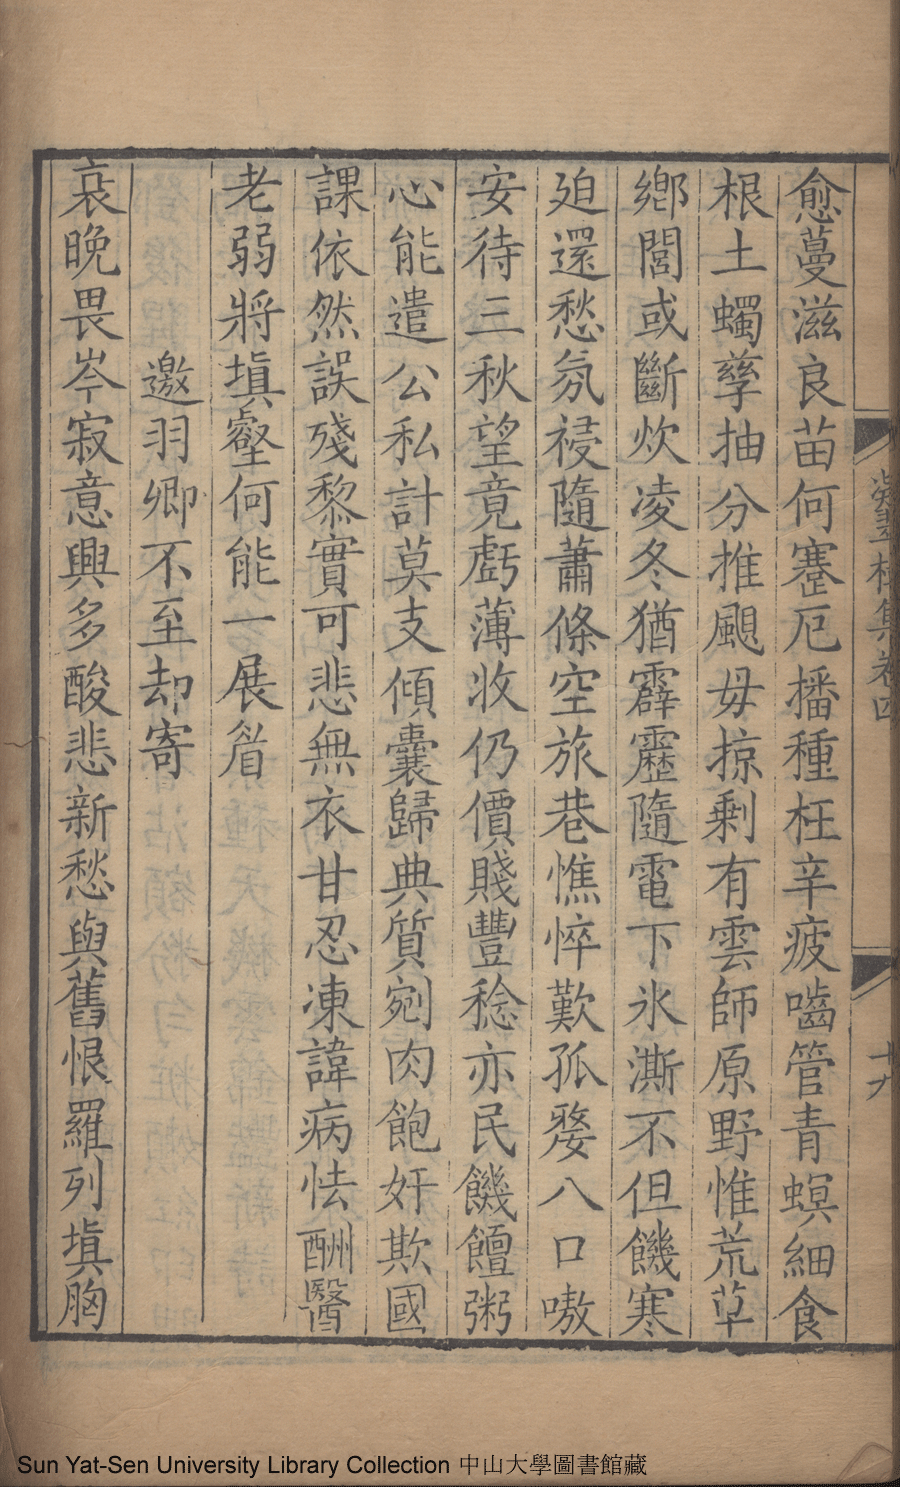 愈蔓滋良苗何蹇厄播種枉辛疲嚙管青螟細食
根土蠋孳抽分推颶毋掠剩有雲師原野惟荒草
鄉閭或斷炊凌冬猶霹靂隨電下氷澌不但饑寒
迫還愁氛祲隨蕭條空旅巷憔悴歎孤嫠八口嗷
安待三秋望竟虧薄收仍價賤豐稔亦民饑饘粥
心能遣公私計莫支傾囊歸典質剜肉飽奸欺國
課依然誤殘黎實可悲無衣甘忍凍諱病怯酬醫
老弱將填壑何能一展眉
邀羽卿不至却寄
衰晚畏岑寂意興多酸悲新愁與舊恨羅列填胸
集卷四
十九
Sun Yat-Sen University Library Collection 中山大學圖書館藏